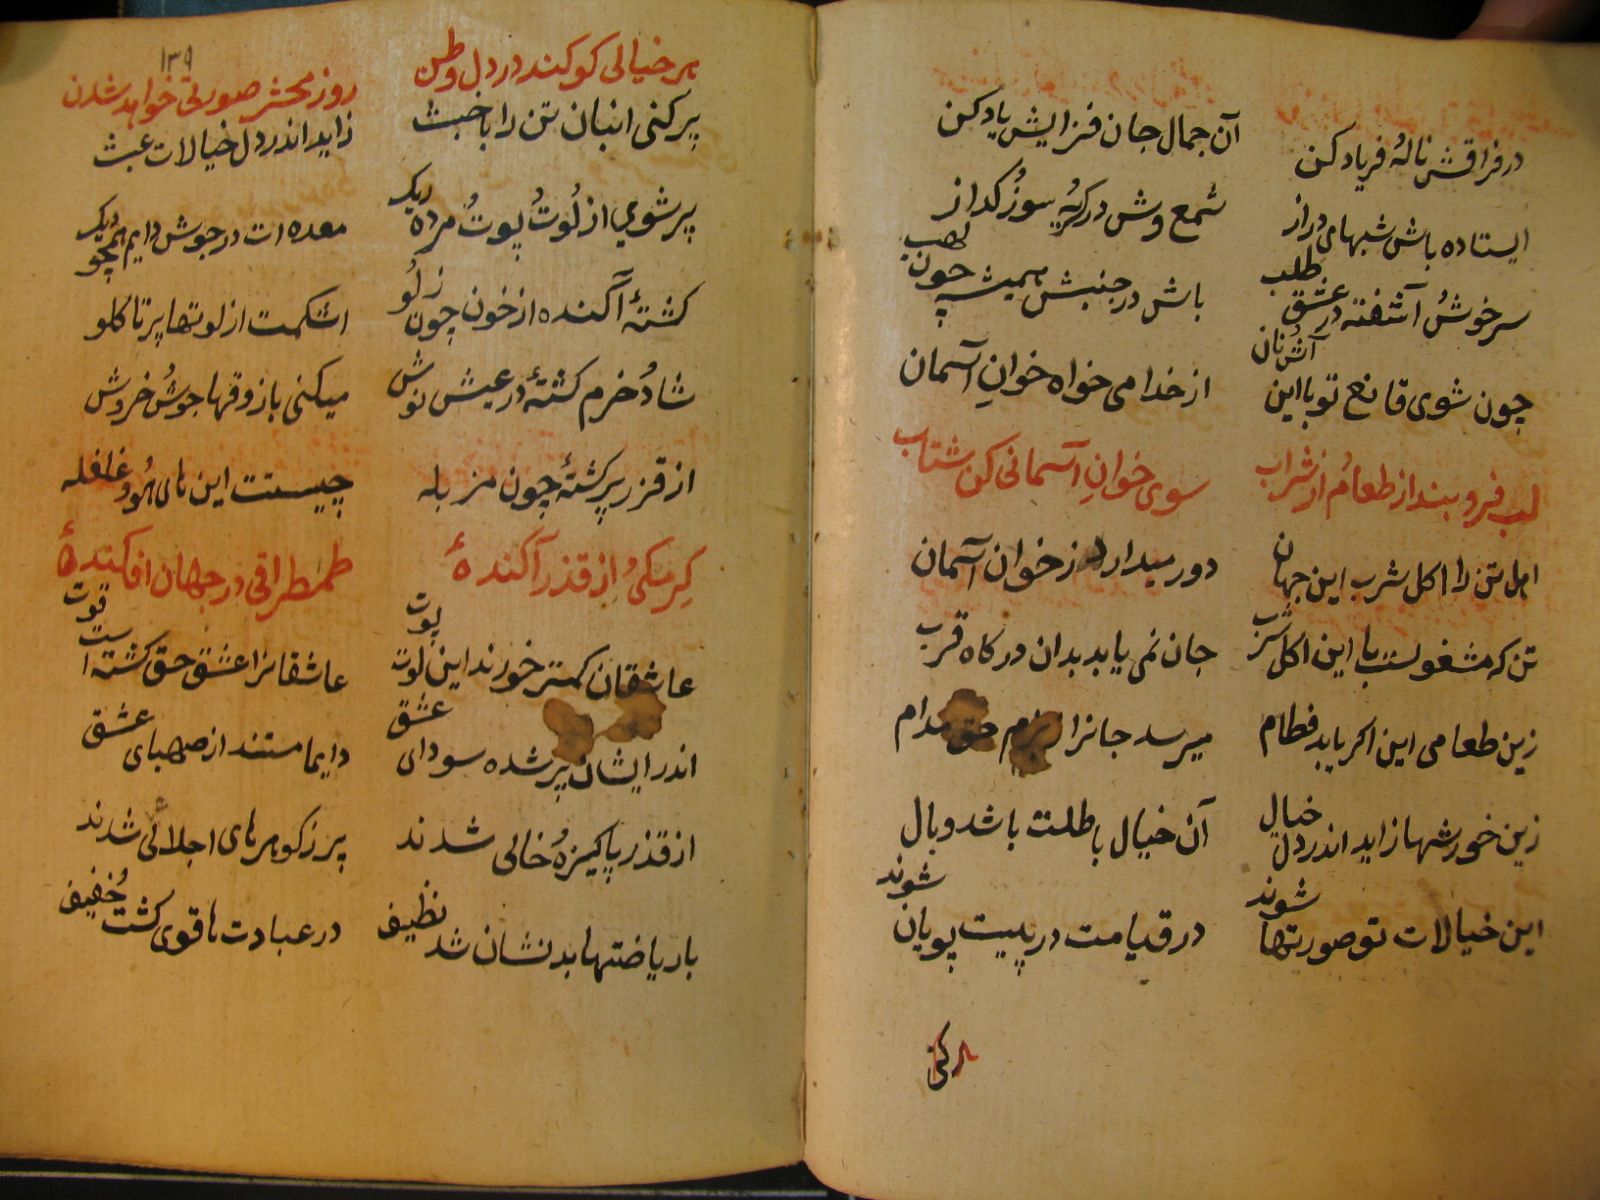 در فراقش نالهٔ فریاد کن آن جمال جان فزایش یاد کن
ایستاده باش شبهای دراز شمع وش در گریهٔ سوز گداز
سرخوشُ آشفته در عشق طلب باش در جنبش همیشه چون لهب
چون شوی قانع تو با این آش نان از خدا می خواه خوانِ آسمان
لب فرو بند از طعامُ از شراب سوی خوانِ آسمانی کن شتاب
اهل تن را اکل شرب این جهان دور میدارد ز خوان آسمان
تن که مشغولست با این اکل شرب جان نمی یابد بدان درکاه قرب
زین طعامی این اکر یابد فطام میرسد جانرا حق مدام
زین خورشها زاید اندر دل خیال آن خیال باطلت باشد وبال
این خیالات تو صورتها شوند در قیامت در پیت پویان شوند
هر خیالی کو کند در دل وطن روز محشر صورتی خواهد شدن
۱۳۹
پر کنی انبان تن را با خبث زاید اندر دل خیالات عبث
پر شوی از لُوتُ پوتُ مرده ریک معده ات در جوش دایم همچو دیک
کشتهٔ آکنده از خون چون زلُو اشکمت از لوتها پر تا کلو
شادُ خرم کشتهٔ در عیش نوش میکنی باز وقها جوشُ خروش
از قزر پر کشتهٔ چون مزبله چیست این های هُو غلغله
کِرمکی از قذر آکندهٔ طمطراقی در جهان افکندهٔ
عاشقان کمتر خورند این لوت پوت عاشقانرا عشق حق کشته است قوت
اندر ایشان پر شده سودای عشق دایما مستند از صهبای عشق
از قذر پاکیزهُ خالی شدند پر ز کوهرهای اجلالی شدند
با ریاضتها بدنشان شد نظیف در عبادت ها قوی کشت خُفیف